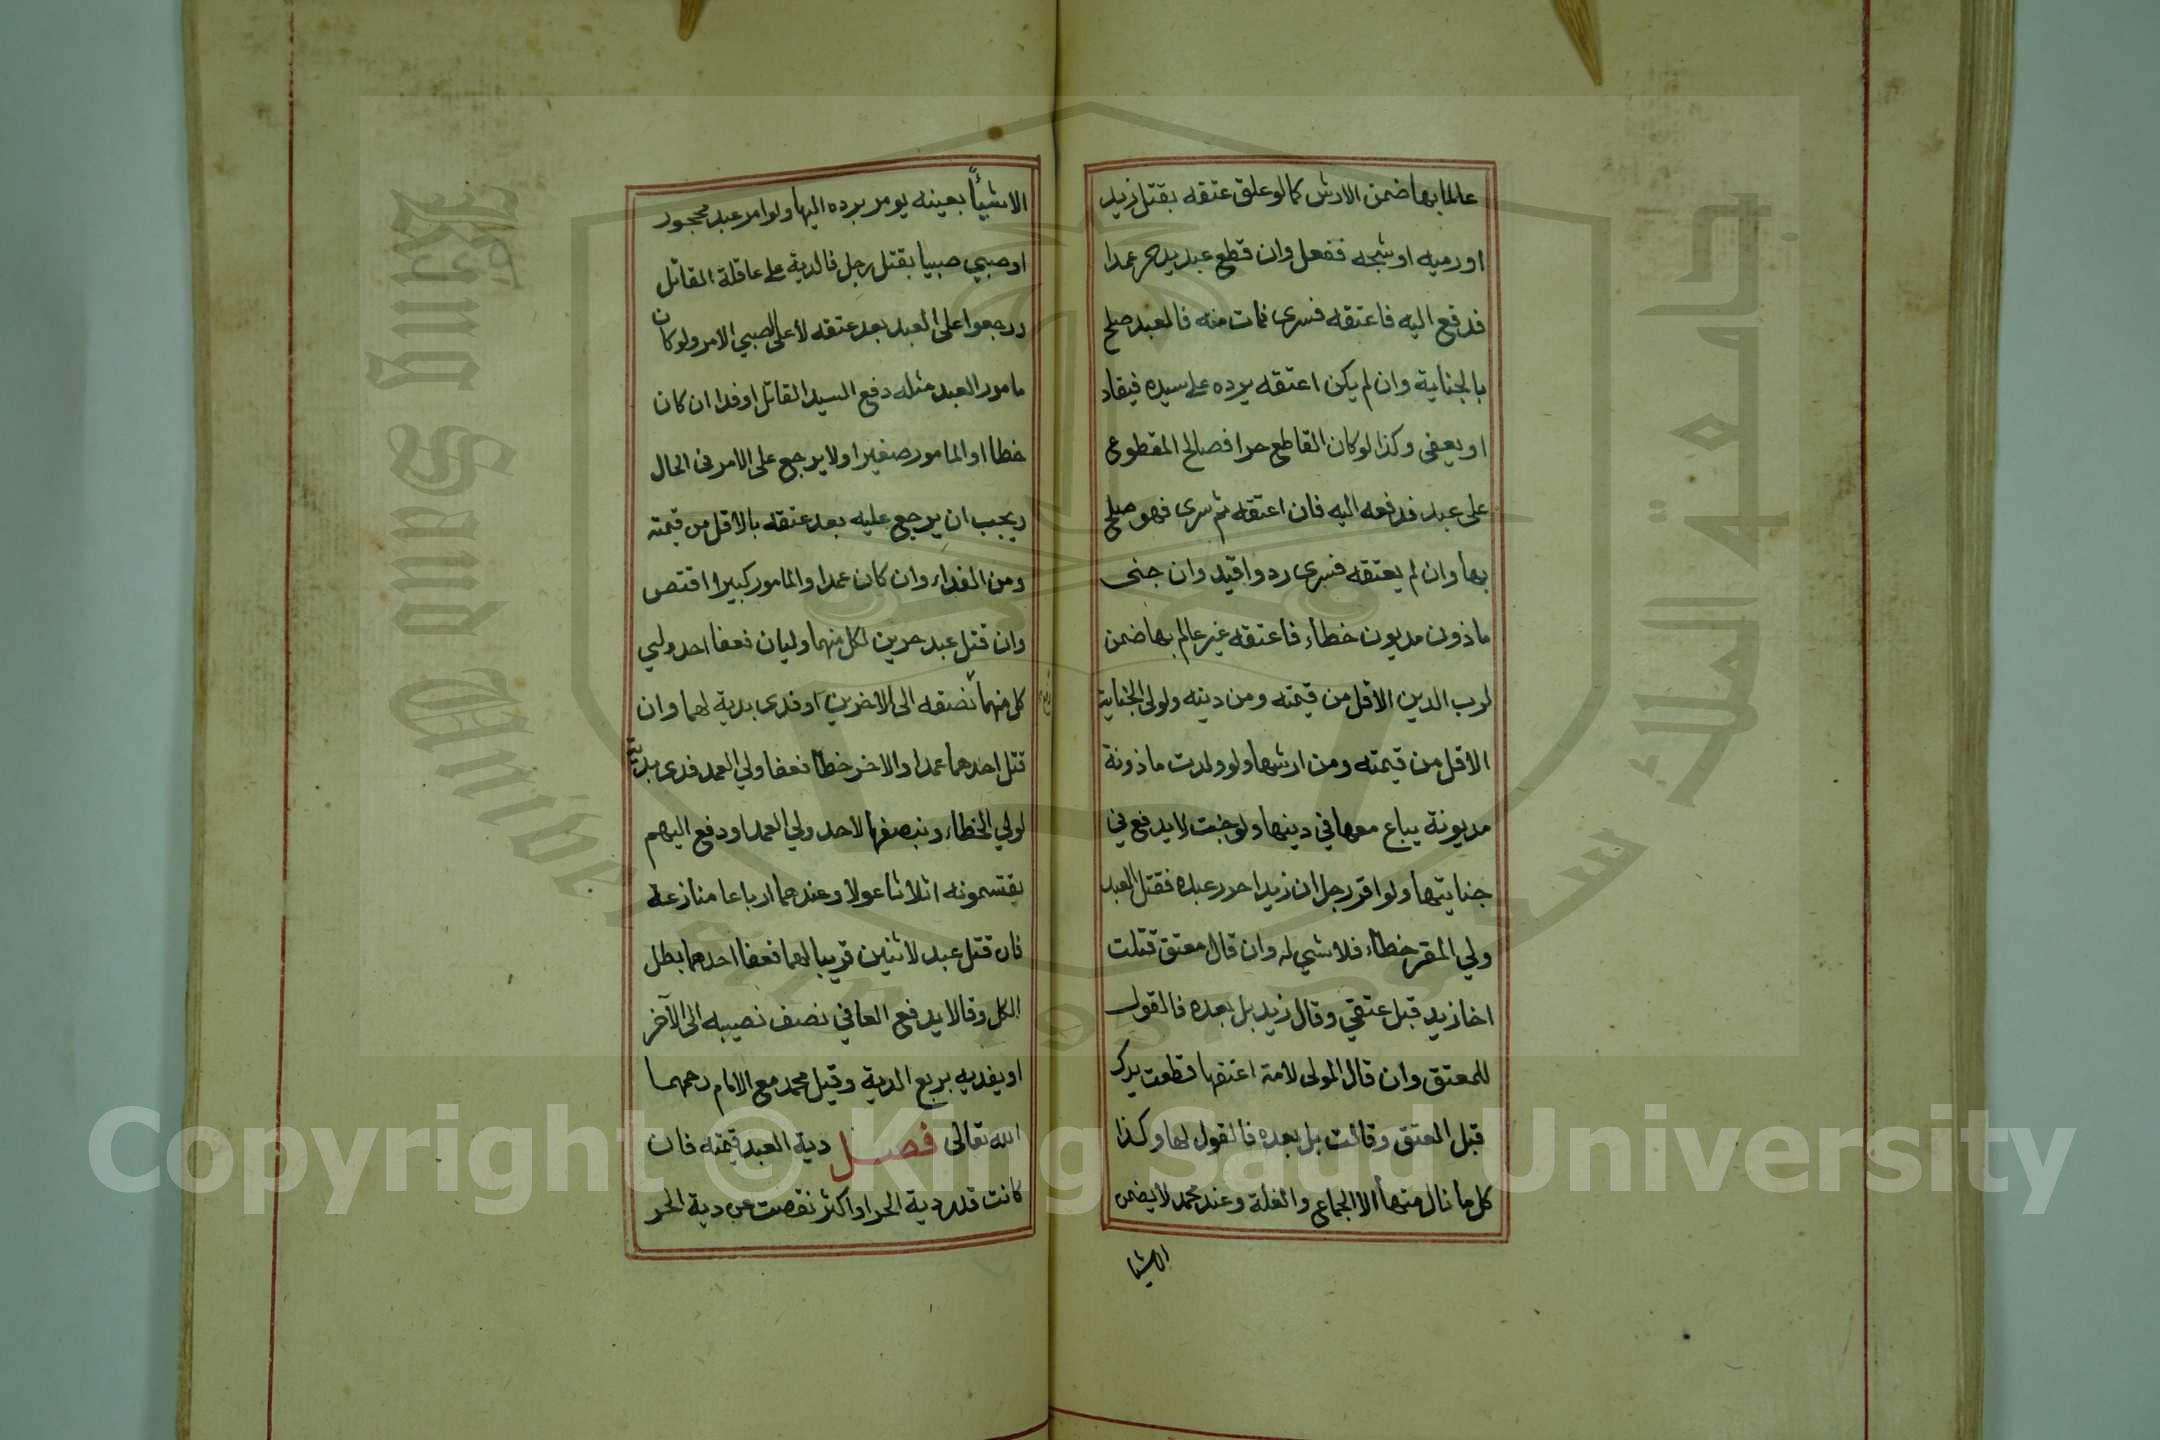 عالما بها ضمن الارش كما لو علق عتقه بقتل زيد
او رميه او شجه ففعل وان قطع عبد يد حر عمدا
فدفع اليه فاعتقه فسرى فمات منه فالعبد صلح
بالجناية وان لم يكن اعتقه يرده على سيده فيقاد
او يعفى وكذا لو كان القاطع حرا فصالح المقطوع
على عبد فدفعه اليه فان اعتقه ثم سرى فهو صلح
بها وان لم يعتقه فسرى رد واقيد وان جنى
ماذون مديون خطاء فاعتقه غير عالم بها ضمن
لرب الدين الاقل من قيمته ومن دينه ولولى الجناية
الاقل من قيمته ومن ارشها ولو ولدت ماذونة
مديونة يباع معها في دينها ولو جنت لا يدفع في
جنايتها ولو اقر رجل ان زيدا حرر عبده فقتل العبد
ولي المقر خطاء فلا شي له وان قال معتق قتلت
اخا زيد قبل عتقي وقال زيد بل بعده فالقول
للمعتق وان قال المولى لامة اعتقها قطعت يدك
قبل العتق وقالت بل بعده فالقول لها وكذا
كل ما نال منها الا الجماع والغلة وعند محمد لا يضمن
الاشيا
الا شيأ بعينه يومر برده اليها ولو امر عبد محجور
او صبي صبيا بقتل رجل فالدية على عاقلة القاتل
ورجعوا على العبد بعد عتقه لا على الصبي الامر ولو كان
مامور العبد مثله دفع السيد القاتل او فدا ان كان
خطا او المامور صغيرا ولا يرجع على الامر في الحال
ويجب ان يرجع عليه بعد عتقه بالاقل من قيمته
ومن الفداء وان كان عمدا والمامور كبيرا اقتص
وان قتل عبد حرين لكل منهما وليان فعفا احد ولي
كل منهما نصفه الى الاخرين او فدى بدية لهما وان
قتل احدهما عمدا والاخر خطأ فعفا ولي العمد فدى بدية
لولي الخطاء وبنصفها لاحد ولي العمد او دفع اليهم
يقتسمونه اثلاثا عولا وعندهما ارباعا منازعة
فان قتل عبد لاثنين قريبا لهما فعفا احدهما بطل
الكل وقالا يدفع العافي نصف نصيبه الى الآخر
او يفديه بربع الدية وقيل محمد مع الامام رحمهما
الله تعالى فصل دية العبد قيمته فان
كانت قدر دية الحر او اكثر نقصت عن دية الحر
جامعة الملك سعود
King Saud University
1957
Copyright © King Saud University